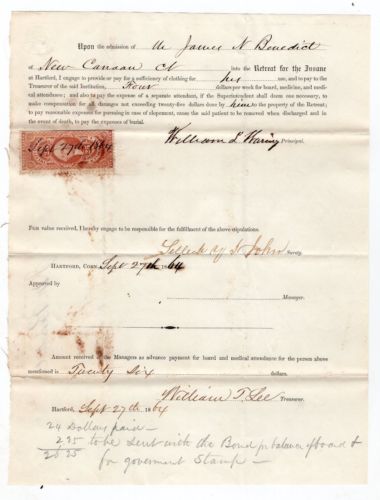 Upon the admission of Mr James N Benedict
of New Canaan Ct into the Retreat for the Insane
at Hartford, I engage to provide or pay for a sufficiency of clothing for his use, and to pay to the
Treasurer of the said Institution, Four dollars per week for board, medicine, and medical
attendance; and also to pay the expense of a separate attendant, if the Superintendent shall deem one necessary, to
make compensation for all damages not exceeding twenty-five dollars done by him to the property of the Retreat;
to pay reasonable expenses for pursuing in case of elopement, cause the said patient to be removed when discharged and in
the event of death, to pay the expenses of burial.
Sept 27th 1864
William L Waring Principal.
For value received, I hereby engage to be responsible for the fulfillment of the above stipulations.
St John Surety.
Hartford, Conn. Sept 27th 1864
Approved by
Manager.
Amount received of the Managers as advance payment for board and medical attendance for the person above
mentioned is Twenty Six dollars.
William T. Lee Treasurer.
Hartford, Sept 27th 1864
24 Dollars paid—
2.25 to be sent with the Bond for balance of board &
26 25 for goverment Stamp—